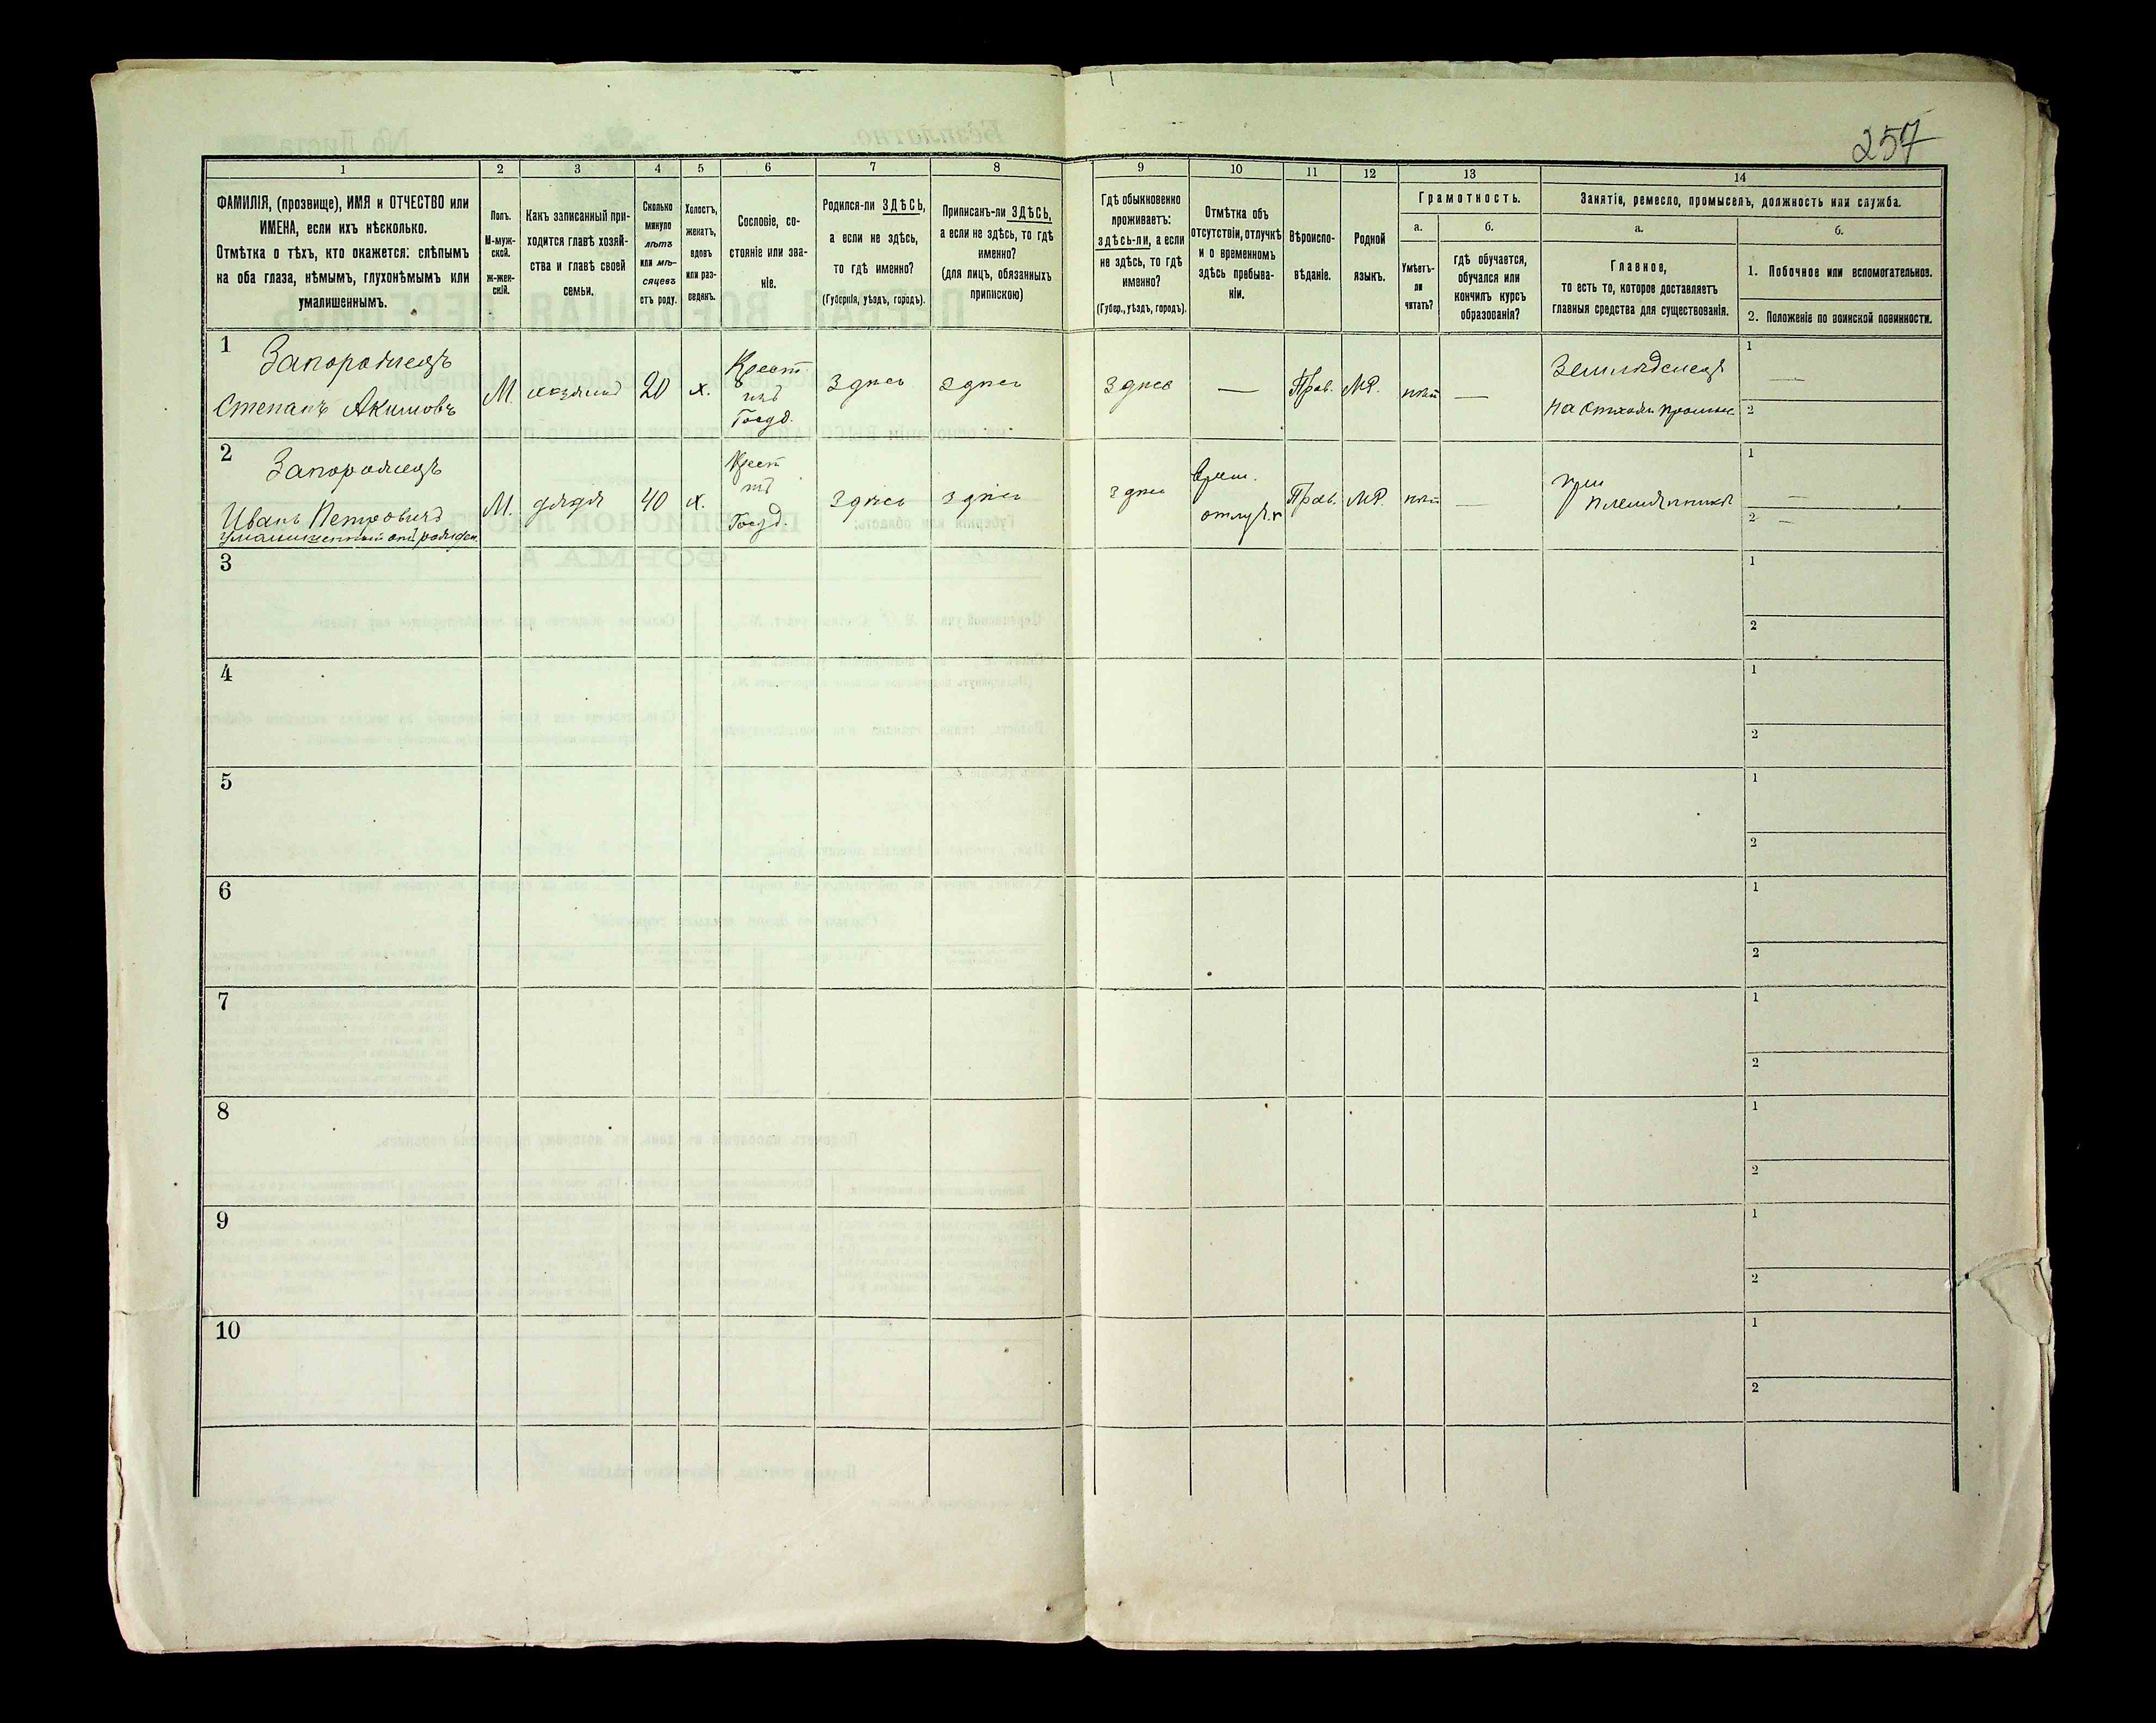 257
1
2
3
4
5
6
7
8
9
10
11
12
13
14
ФАМИЛІЯ, (прозвище), ИМЯ и ОТЧЕСТВО или
ИМЕНА, если ихъ нѣсколько.
Отмѣтка о тѣхъ, кто окажется: слѣпымъ
на оба глаза, нѣмымъ, глухонѣмымъ или
умалишеннымъ.
Полъ.
М-муж-
ской.
ж-жен-
скій.
Какъ записанный при-
ходится главѣ хозяй-
ства и главѣ своей
семьи.
Сколько
минуло
лѣтъ
или мѣ-
сяцевъ
отъ роду.
Холостъ,
женатъ,
вдовъ
или раз-
веденъ.
Сословіе, со-
стояніе или зва-
ніе.
Родился-ли ЗДѢСЬ,
а если не здѣсь,
то гдѣ именно?
(Губернія, уѣздъ, городъ).
Приписанъ-ли ЗДѢСЬ,
а если не здѣсь, то гдѣ
именно?
(для лицъ, обязанныхъ
припискою)
Гдѣ обыкновенно
проживаетъ:
здѣсь-ли, а если
не здѣсь, то гдѣ
именно?
(Губер., уѣздъ, городъ).
Отмѣтка объ
отсутствіи, отлучкѣ
и о временномъ
здѣсь пребыва-
ніи.
Вѣроиспо-
вѣданіе.
Родной
языкъ.
Грамотность.
а.
б.
Умѣетъ-
ли
читать?
гдѣ обучается,
обучался или
кончилъ курсъ
образованія?
Занятіе, ремесло, промыселъ, должность или служба.
а.
б.
Главное,
то есть то, которое доставляетъ
главныя средства для существованія.
1. Побочное или вспомогательное.
2. Положеніе по воинской повинности.
1
Запорожецъ
Степанъ Акимовъ
М.
хозяинъ
20
х.
Крест.
изъ
Госуд.
Здѣсь
Здѣсь
Здѣсь
—
Прав.
МР.
нѣт
—
Земледелецъ
на
1
—
2
2
Запорожецъ
Иванъ Петровичъ
умалишенный отъ рожден.
М.
дядя
40
х.
Крест
изъ
Госуд.
Здѣсь
Здѣсь
Здѣсь
Врем.
отлуч.
Прав.
МР.
нѣт
—
при
племянникѣ
1
—
2 —
3
1
2
4
1
2
5
1
2
6
1
2
7
1
2
8
1
2
9
1
2
10
1
2